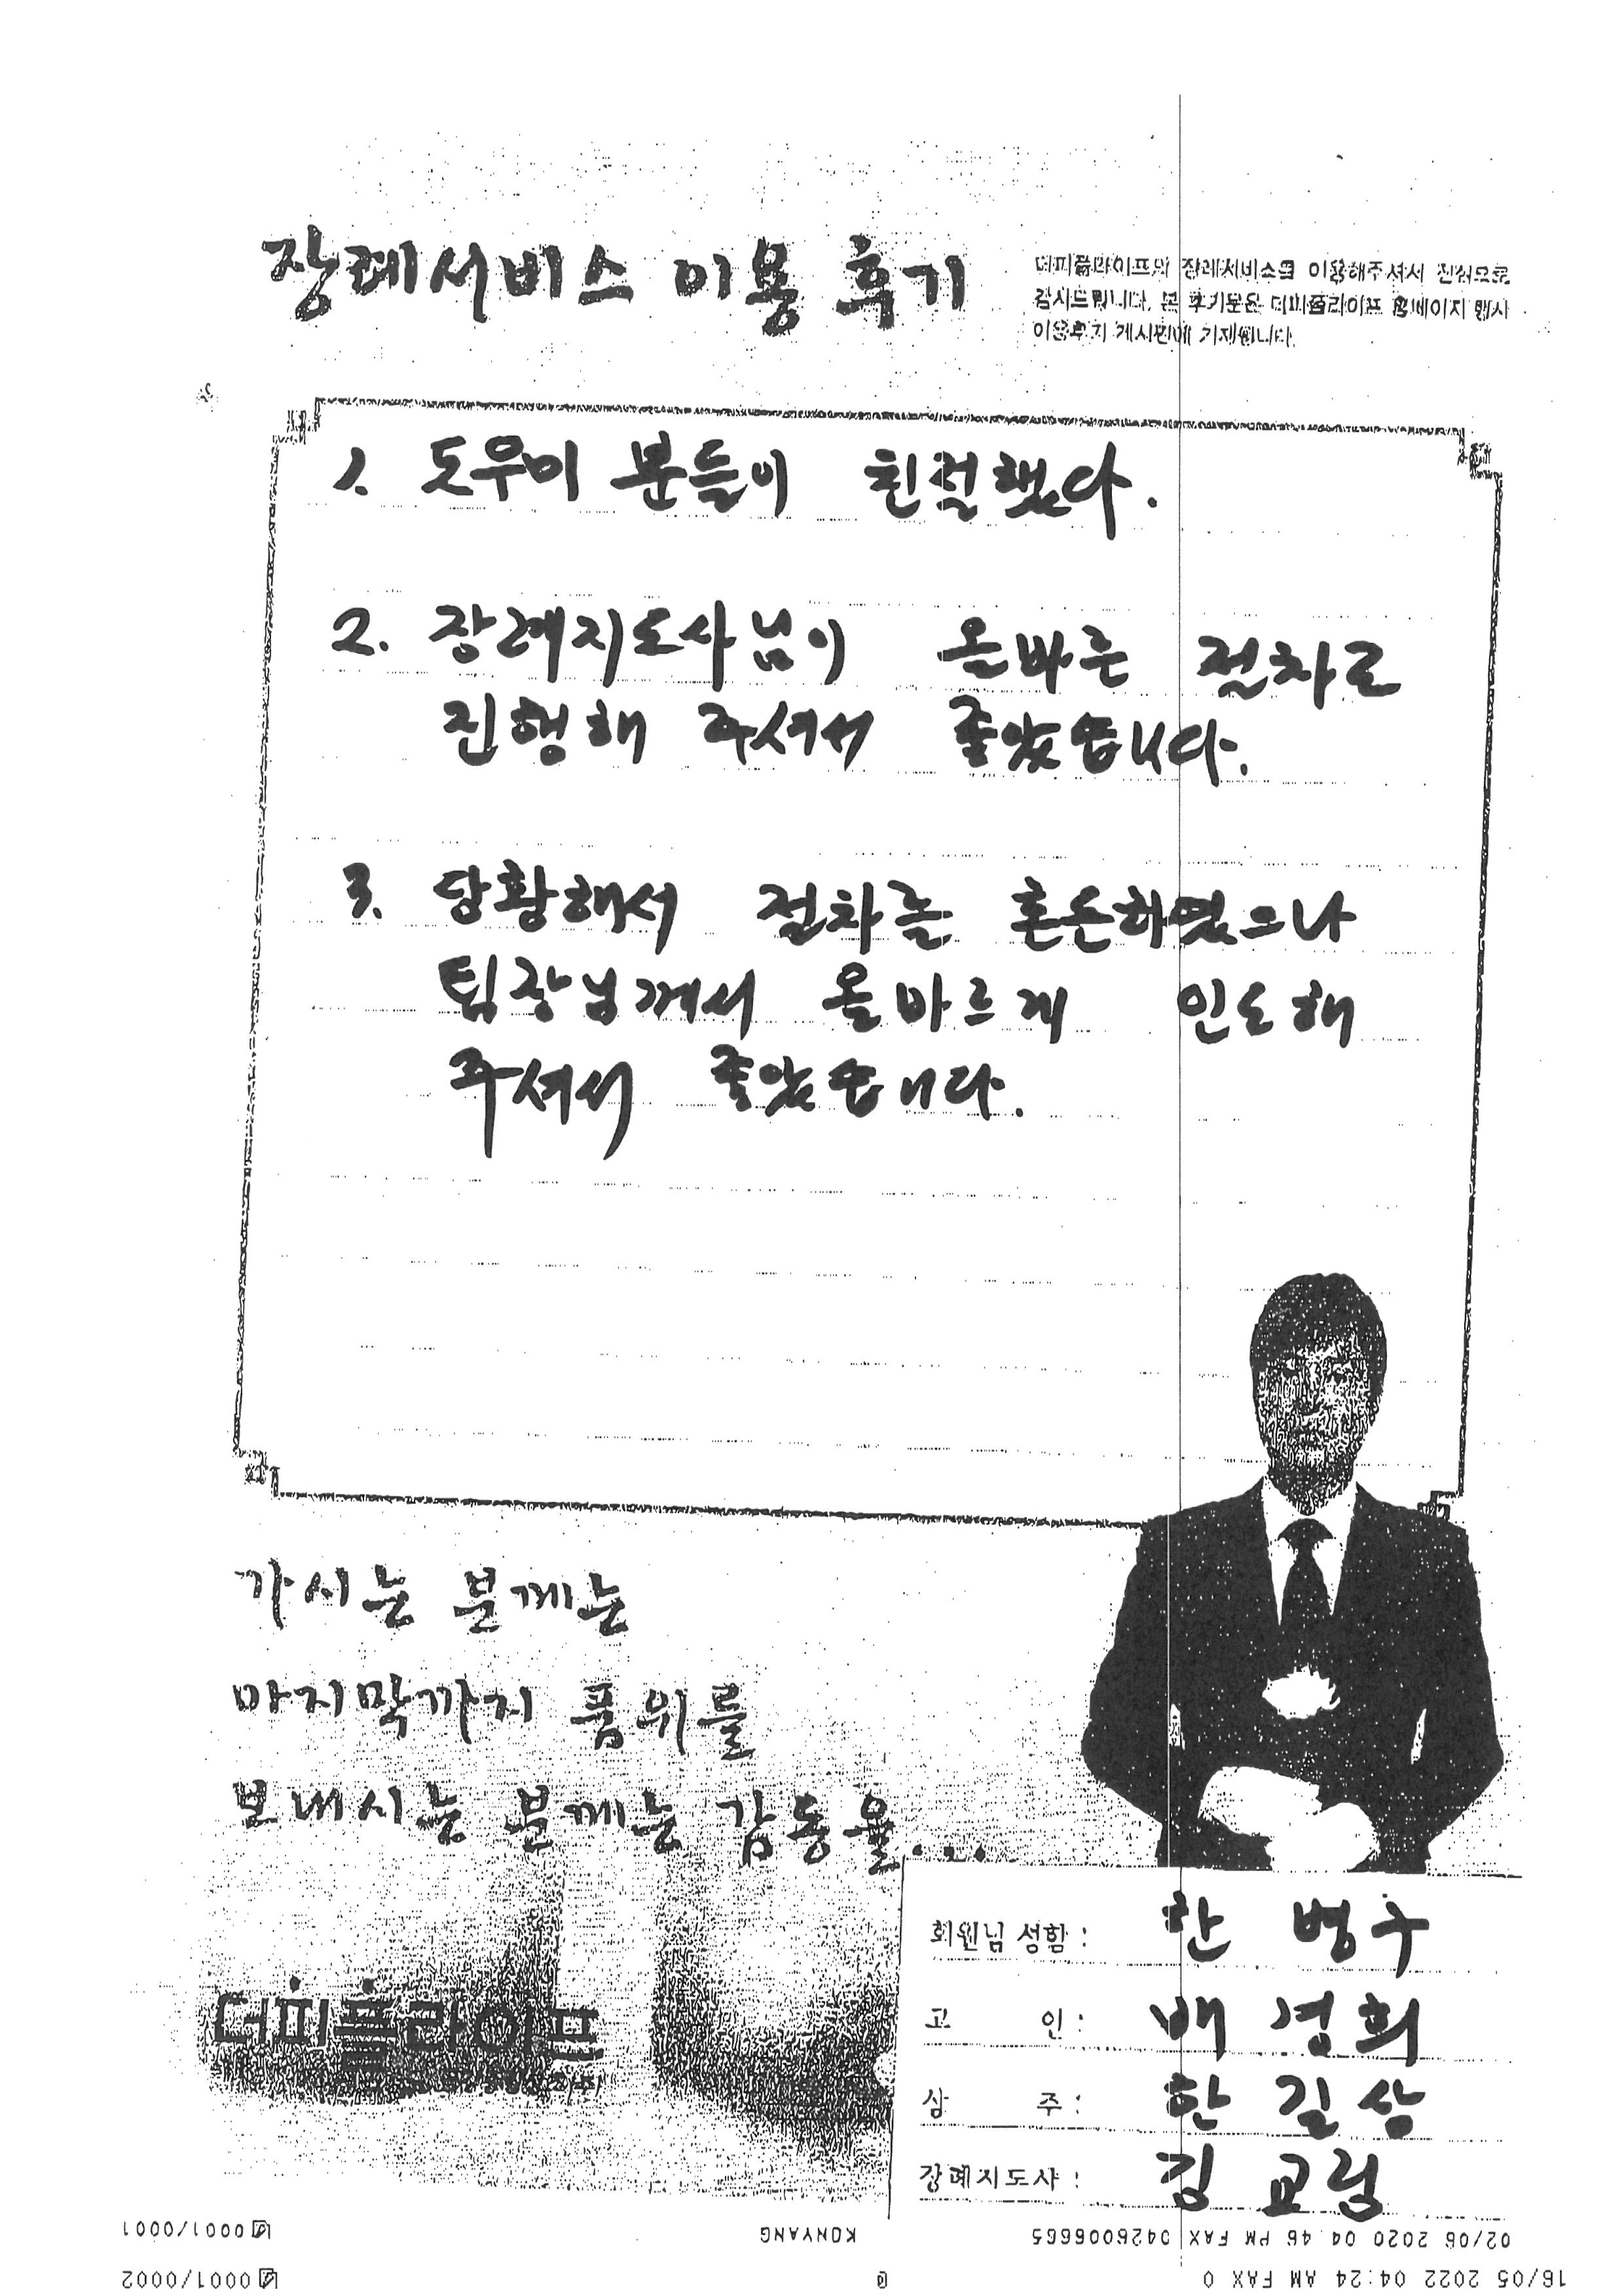 장례서비스 이용 후기
더피플라이프의 장례서비스를 이용해주셔서 진심으로
감사드립니다. 본 후기문은 더피플라이프 홈페이지 행사
이용후기 게시판에 기재됩니다.
1. 도우미 분들이 친절했다.
2. 장례지도사님이 올바른 절차로
진행해 주셔서 좋았습니다.
3. 당황해서 절차를 혼돈하였으나
팀장님께서 올바르게 인도해
주셔서 좋았습니다.
가시는 분께는
마지막까지 품위를
보내시는 분께는 감동을...
더피플라이프
회원님 성함 : 한 병구
고 인 : 배 경희
상 주 : 한 길상
장례지도사 : 김 교림
02/06 2020 04:46 PM FAX 0426006665 KONYANG 0001/0001
16/05 2022 04:24 AM FAX 0 @ 0001/0002